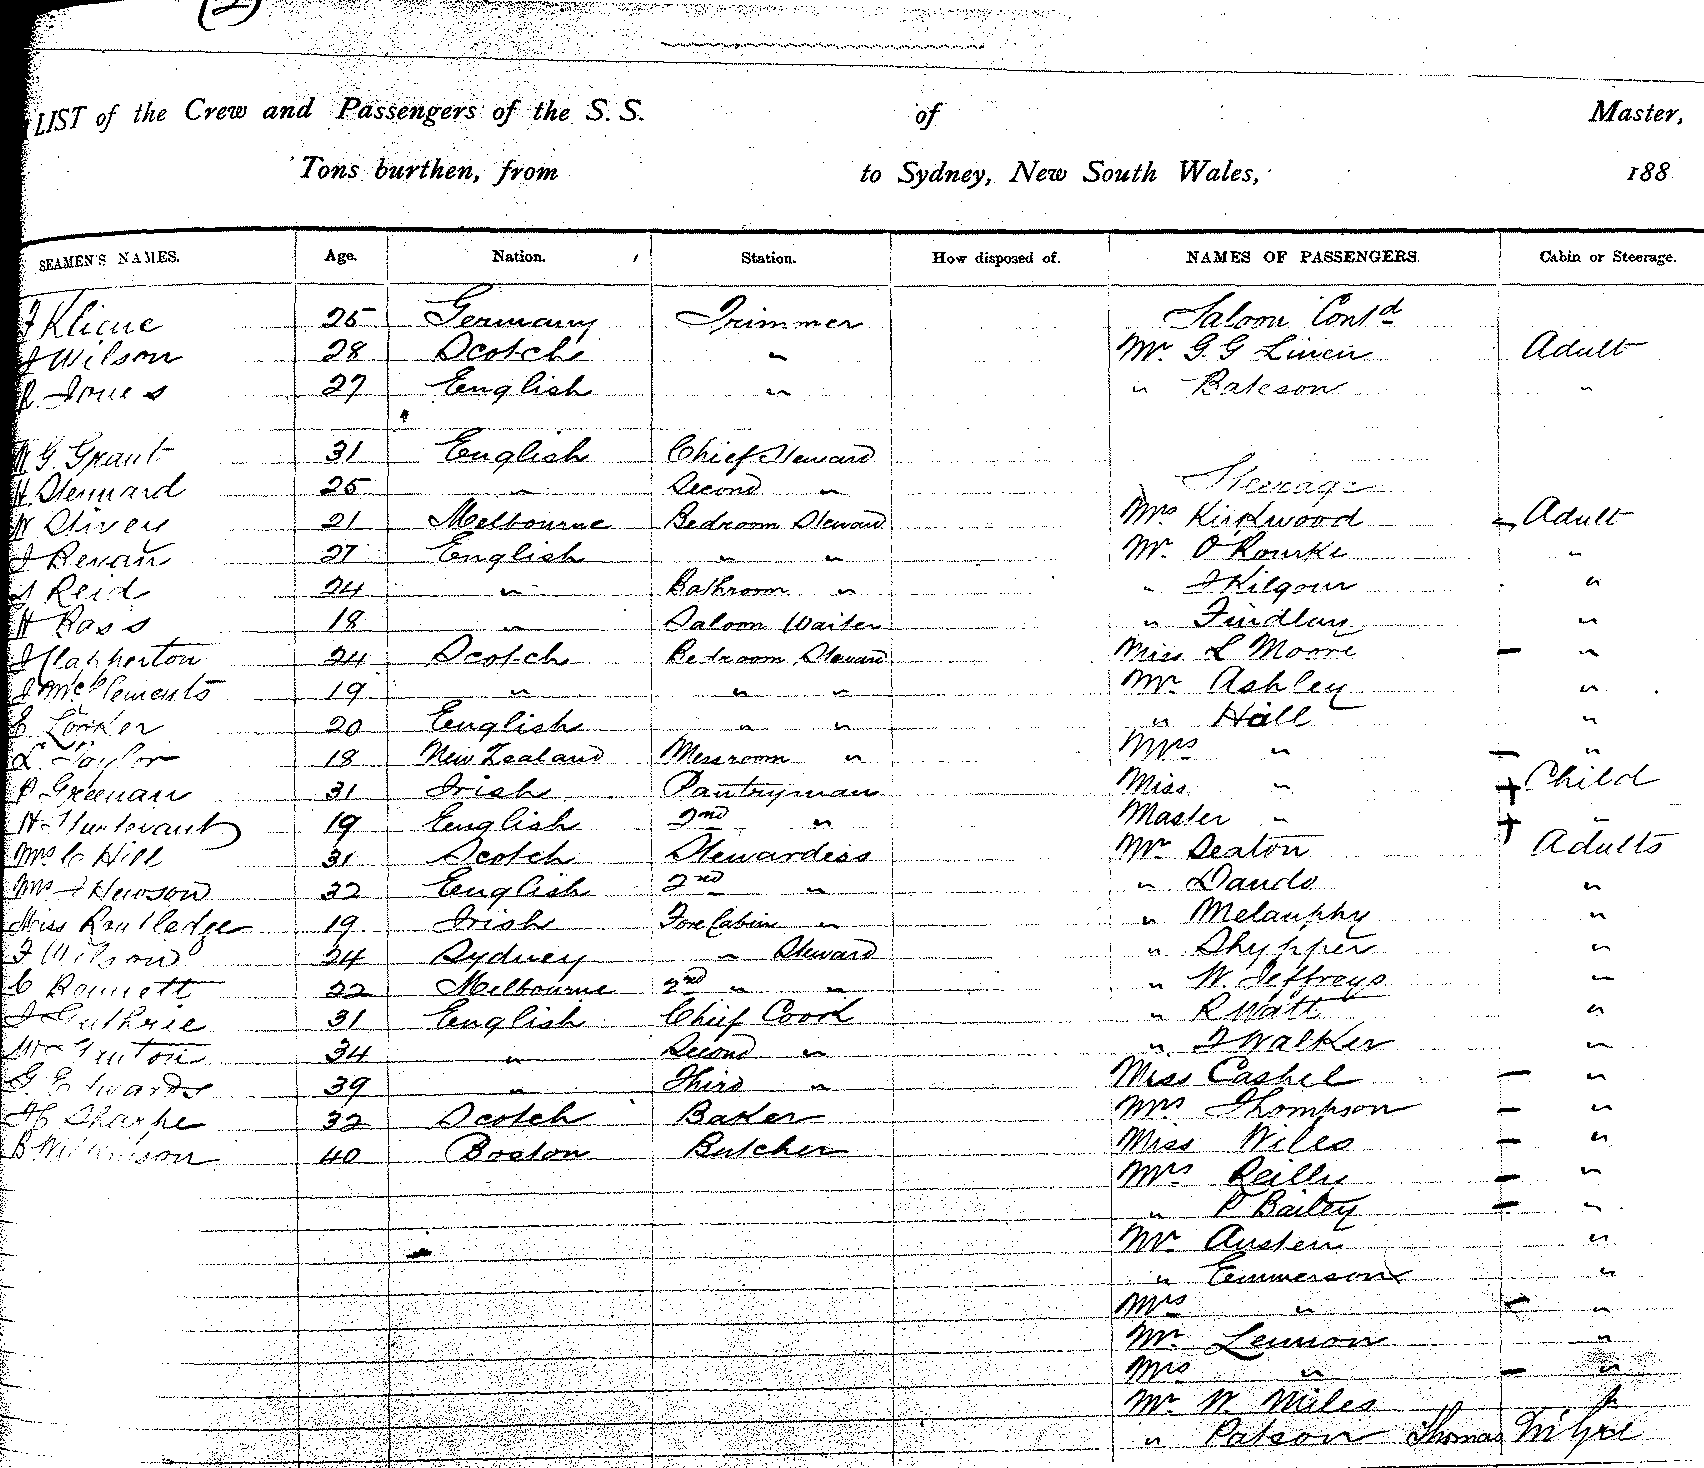 (2)
LIST of the Crew and Passengers of the S.S. of Master,
Tons burthen, from to Sydney, New South Wales, 188
SEAMEN'S NAMES. Age. Nation. Station. How disposed of. NAMES OF PASSENGERS. Cabin or Steerage.
J Kliene 25 Germany Trimmer Saloon Contd
J Wilson 28 Scotch " Mr. G. G Linen Adult
R. Jones 27 English " " Bateson "
W G. Grant 31 English Chief Steward
H Stennard 25 " Second " Steerage
W Stivey 21 Melbourne Bedroom Steward Mrs Kirkwood - Adult
J Bevan 27 English " " Mr. O'Rourke "
J Reid 24 " Bathroom " " J Kilgour "
H Bass 18 " Saloon Waiter " Findlay "
J Clapperton 24 Scotch Bedroom Steward Miss L Moore - "
J McClements 19 " " " Mr Ashley "
E Looker 20 English " " " Hall "
L. Taylor 18 New Zealand Messroom " Mrs " - "
P Greenan 31 Irish Pantryman Miss " + Child
H. Sturtevant 19 English 2nd " Master " + "
Mrs C Hill 31 Scotch Stewardess Mr Seaton Adults
Mrs J Hewson 32 English 2nd " " Dando "
Miss Routledge 19 Irish Fore Cabin " " Melauphy "
F Wilson 24 Sydney " Steward " Shypper "
C Bennett 22 Melbourne 2nd " " " W. Jeffreys "
J Guthrie 31 English Chief Cook " R Watt "
Wm Fenton 34 " Second " " J Walker "
G. Edwards 39 " Third " Miss Cashel - "
Sharpe 32 Scotch Baker Mrs Thompson - "
B Wilkinson 40 Boston Butcher Miss Wiles - "
Mrs Reilly - "
" P Bailey - "
Mr Austen "
" Emmerson "
Mrs " - "
Mr Lennon "
Mrs " - "
Mr W Miles "
" Patson Thomas